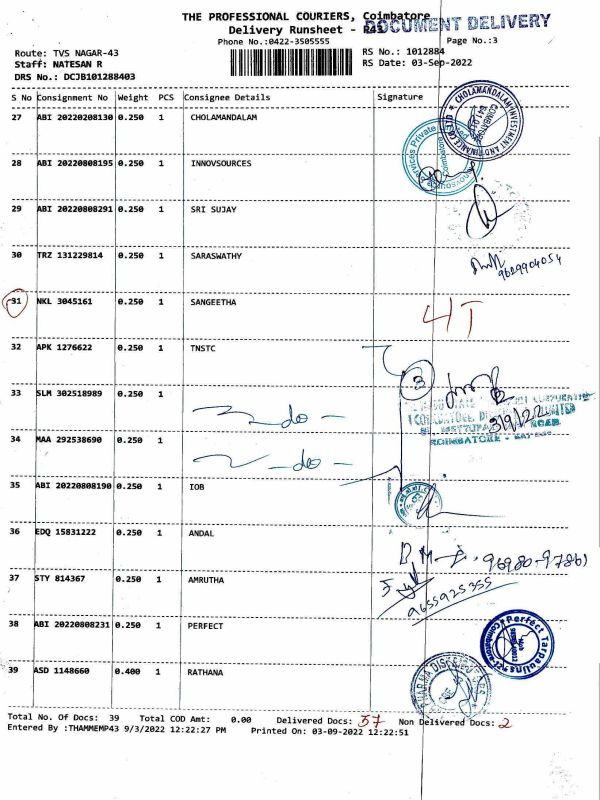 THE PROFESSIONAL COURIERS, Coimbatore
DOCUMENT DELIVERY
Delivery Runsheet - P43
Phone No.:0422-3505555
Page No.:3
Route: TVS NAGAR-43
RS No.: 1012884
Staff: NATESAN R
RS Date: 03-Sep-2022
DRS No.: DCJB101288403
S No Consignment No Weight PCS Consignee Details Signature
27 ABI 20220208130 0.250 1 CHOLAMANDALAM
28 ABI 20220808195 0.250 1 INNOVSOURCES
29 ABI 20220808291 0.250 1 SRI SUJAY
30 TRZ 131229814 0.250 1 SARASWATHY
9629904054
31 NKL 3045161 0.250 1 SANGEETHA
4T
32 APK 1276622 0.250 1 TNSTC
3
33 SLM 302518989 0.250 1
- do -
3/9/22
34 MAA 292538690 0.250 1
- do -
35 ABI 20220808190 0.250 1 IOB
36 EDQ 15831222 0.250 1 ANDAL
96980-97861
37 STY 814367 0.250 1 AMRUTHA
9655925355
38 ABI 20220808231 0.250 1 PERFECT
Perfect Tarpaulins
39 ASD 1148660 0.400 1 RATHANA
Total No. Of Docs: 39 Total COD Amt: 0.00 Delivered Docs: 37 Non Delivered Docs: 2
Entered By :THAMMEMP43 9/3/2022 12:22:27 PM Printed On: 03-09-2022 12:22:51